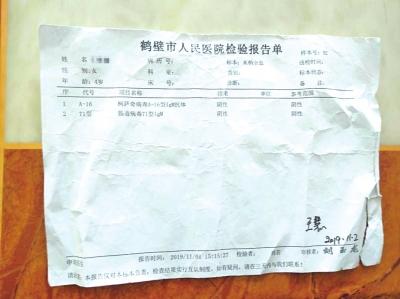 鹤壁市人民医院检验报告单
姓名 病历号: 标本: 末梢全血 样本号: 
性别: 女 科室: 类别: 送检时间:
年龄: 4岁 床号: 诊断: 标本状态:
备注
序 代号 项目名称 结果 单位 参考范围
1 A-16 柯萨奇病毒A-16型IgM抗体 阴性 阴性
2 71型 肠道病毒71型IgM 阴性 阴性
2019.11.2
审核日 报告时间: 2019/11/02 15:15:27 检验者: 审核者:
本报告仅对本标本负责, 检查结果实行互认制度, 如有疑问, 请在三天内与我们联系!